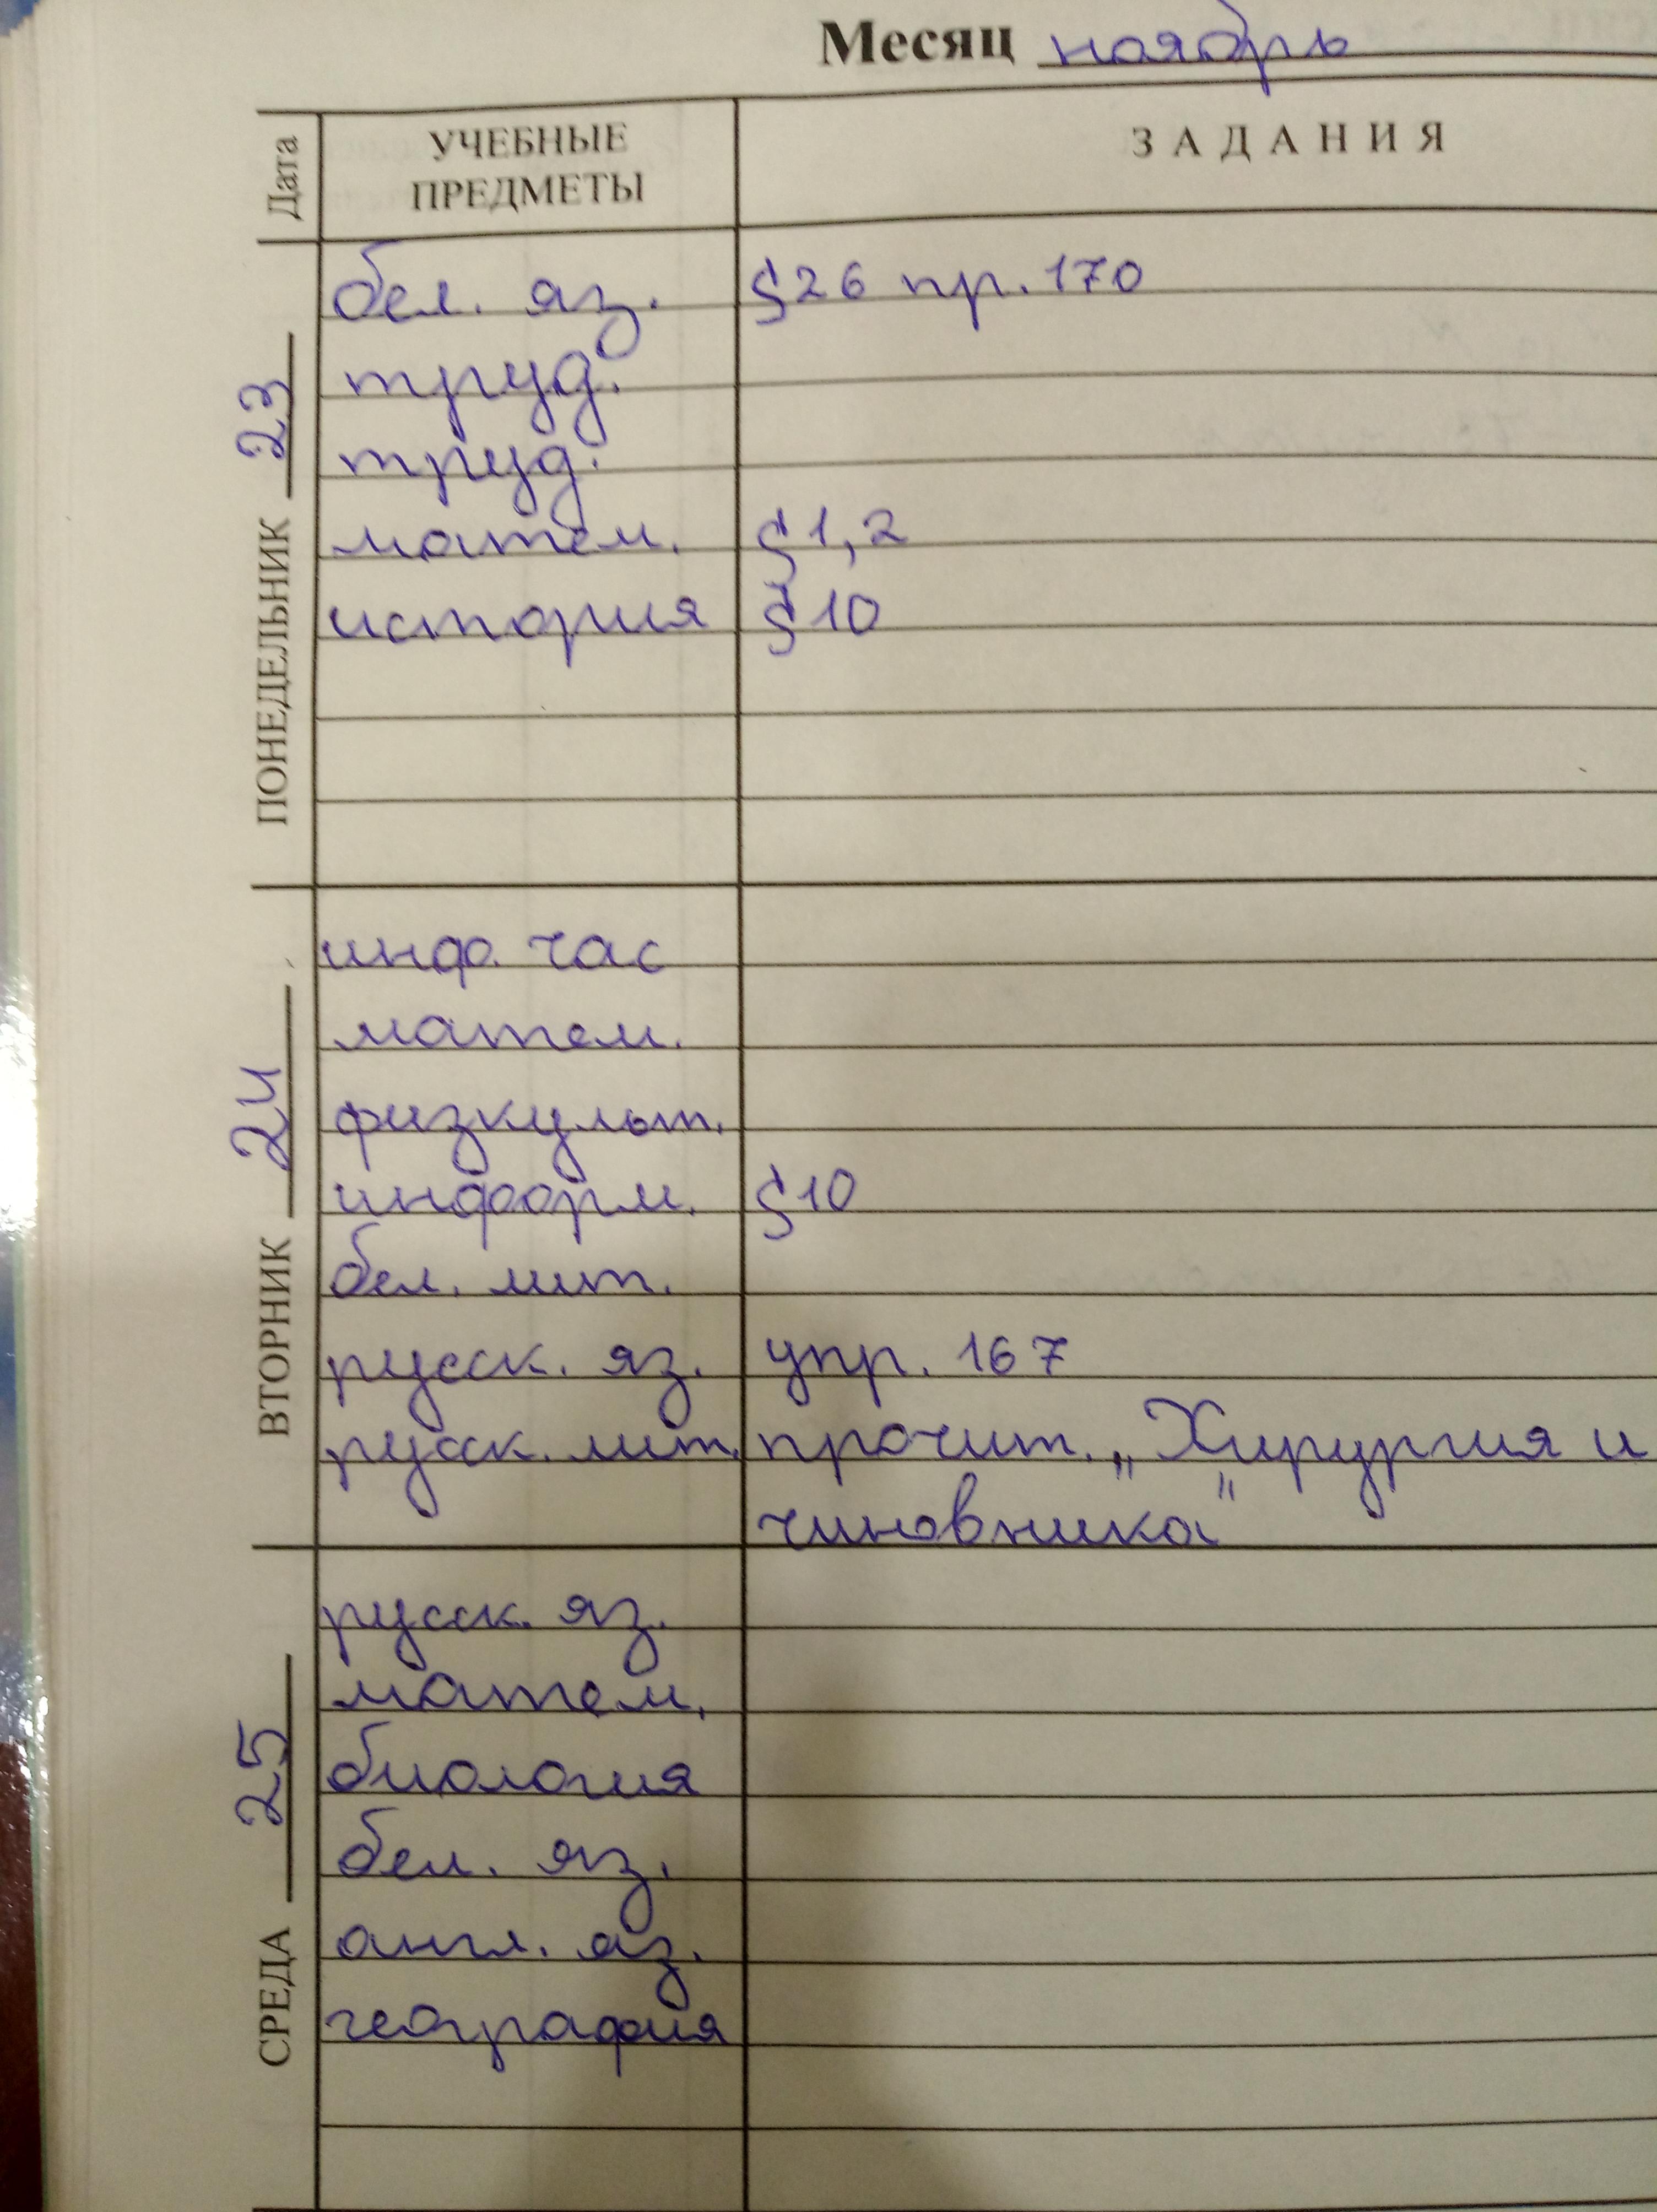 Месяц ноябрь
Дата
УЧЕБНЫЕ ПРЕДМЕТЫ
ЗАДАНИЯ
ПОНЕДЕЛЬНИК 23
бел. яз. §26 пр. 170
труд.
труд.
матем. §1,2
история §10
ВТОРНИК 24
инф. час
матем.
физкульт.
информ. §10
бел. лит.
русск. яз. упр. 167
русск. лит. прочит. „Хирургия и
чиновника"
СРЕДА 25
русск. яз.
матем.
биология
бел. яз.
англ. яз.
география